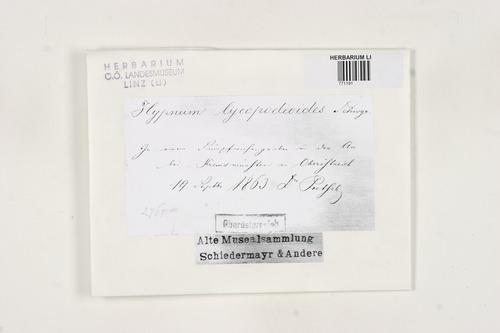 HERBARIUM
O.Ö. LANDESMUSEUM
LINZ (LI)
HERBARIUM LI
771191
Hypnum lycopodioides Schwgr.
In einem Sumpfwiesengraben in der Au
bei Kremsmünster in Oberöstreich
19 Septbr 1863 Dr Poetsch
Oberösterreich
Alte Musealsammlung
Schiedermayr & Andere